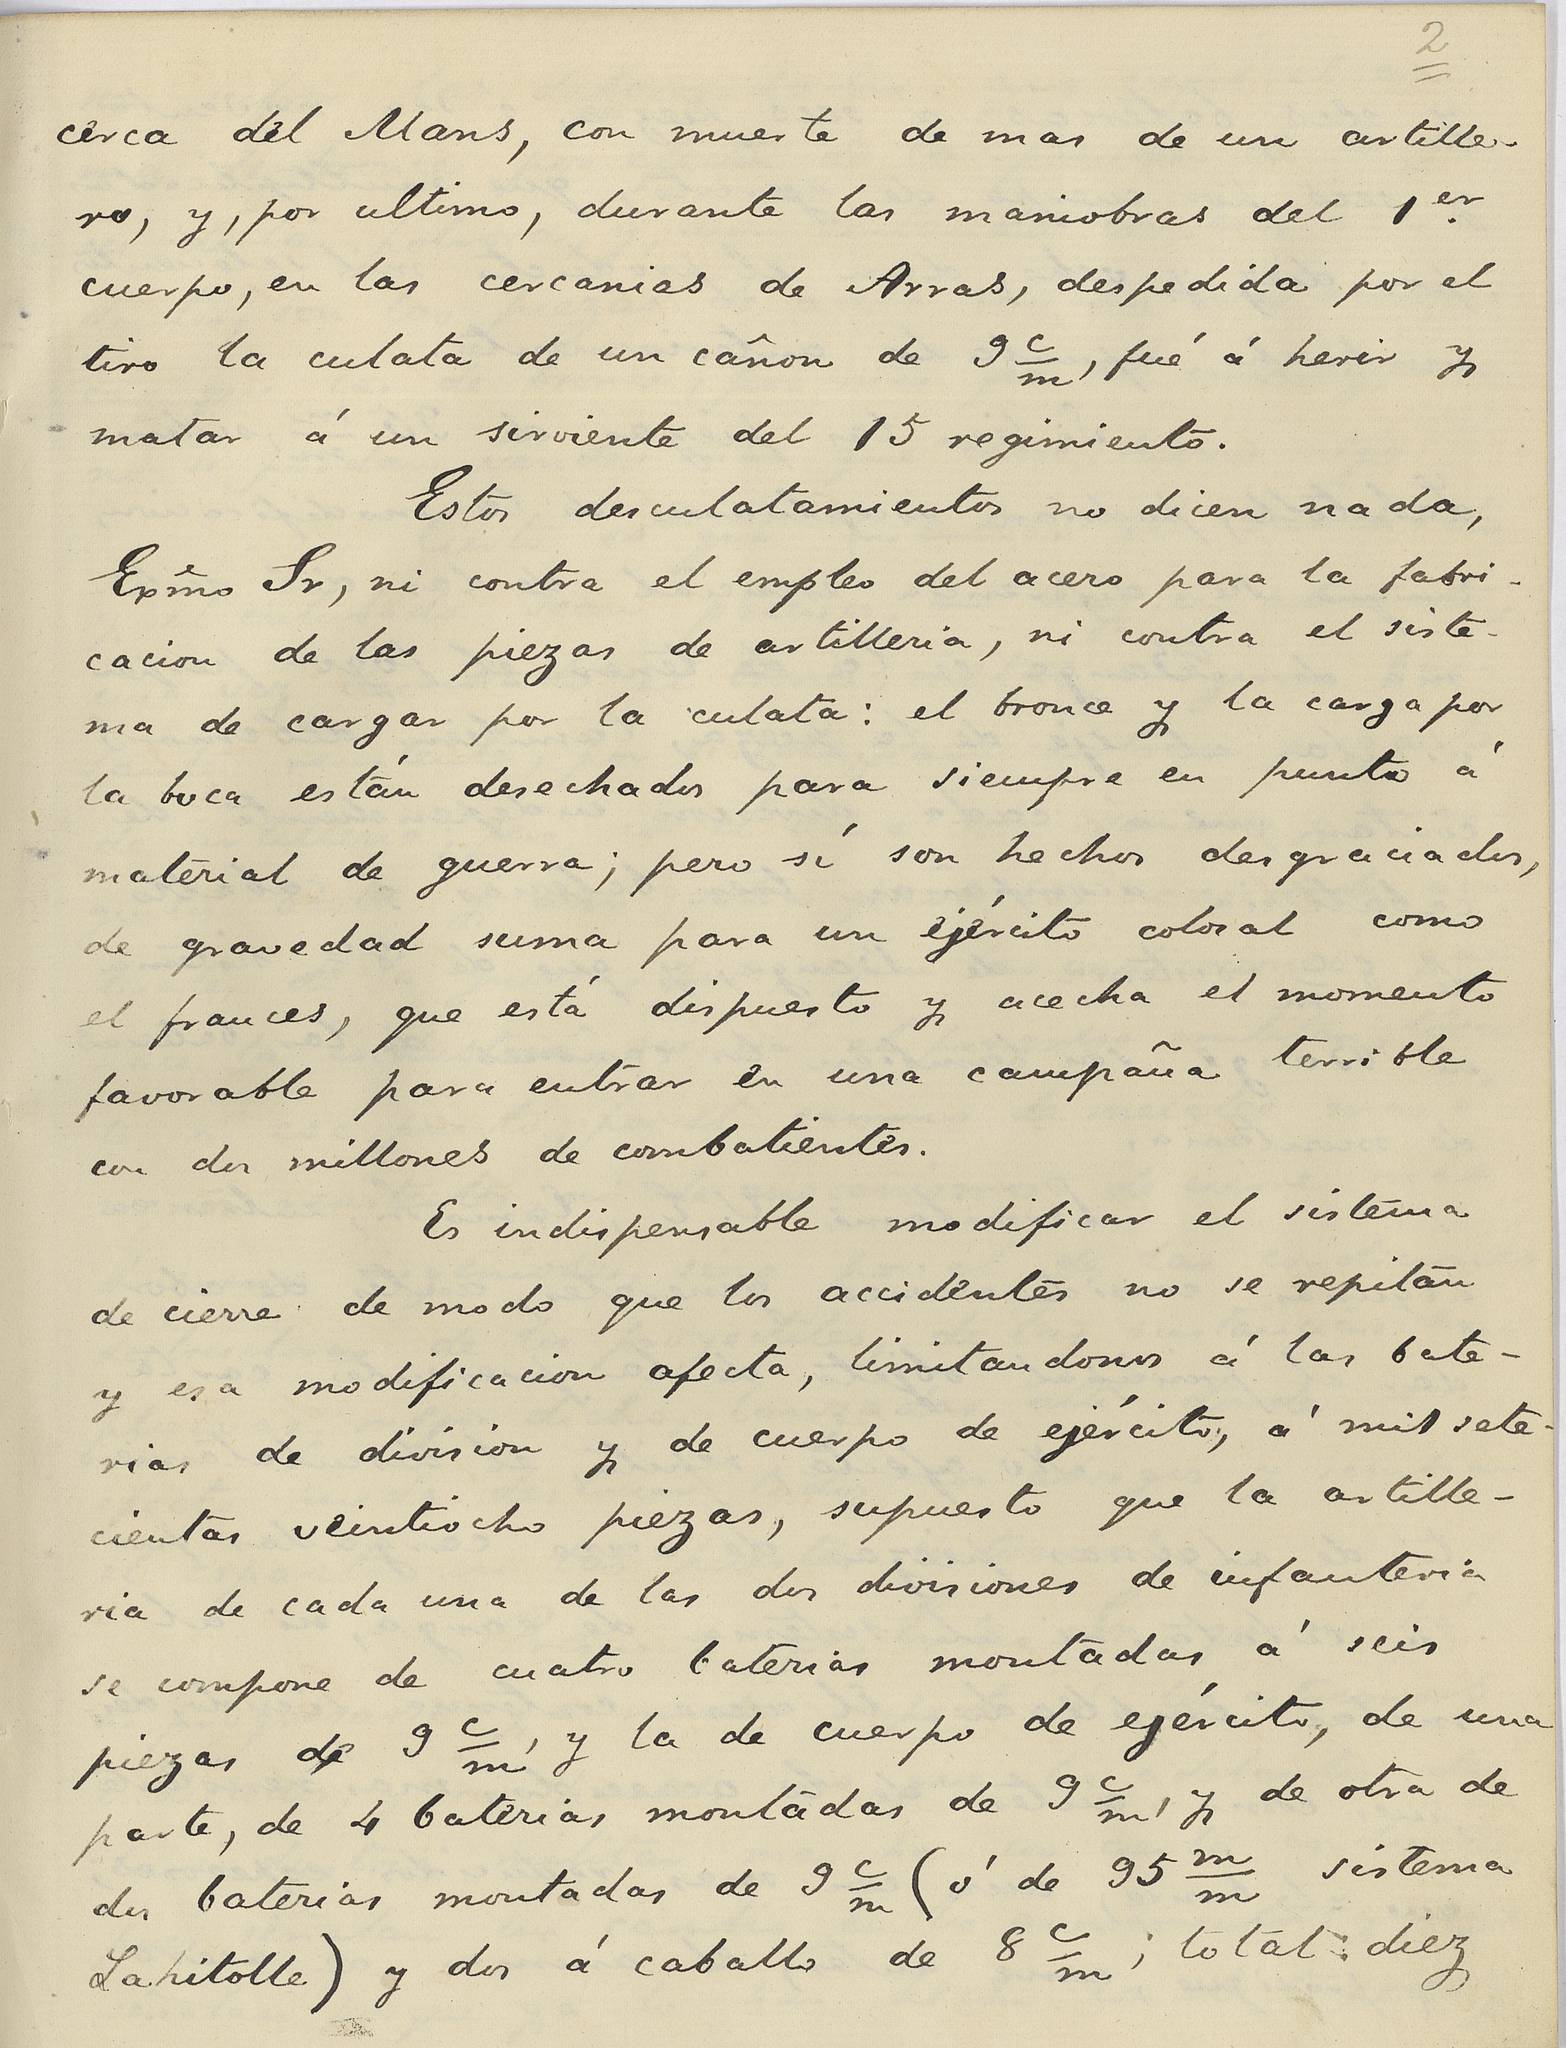 2
cerca del Mans, con muerte de mas de un artille-
ro, y, por ultimo, durante las maniobras del 1er
cuerpo, en las cercanias de Arras, despedida por el
tiro la culata de un cañon de 9 c/m, fué á herir y
matar á un sirviente del 15 regimiento.
Estos desculatamientos no dicen nada,
Exmo Sr, ni contra el empleo del acero para la fabri-
cacion de las piezas de artilleria, ni contra el siste-
ma de cargar por la culata: el bronce y la carga por
la boca están desechados para siempre en punto á
material de guerra; pero sí son hechos desgraciados,
de gravedad suma para un ejército colosal como
el frances, que está dispuesto y acecha el momento
favorable para entrar en una campaña terrible
con dos millones de combatientes.
Es indispensable modificar el sistema
de cierre de modo que los accidentes no se repitan
y esa modificacion afecta, limitandonos á las bate-
rias de division y de cuerpo de ejército, á mil sete-
cientas veintiocho piezas, supuesto que la artille-
ria de cada una de las dos divisiones de infanteria
se compone de cuatro baterias montadas á seis
piezas de 9 c/m, y la de cuerpo de ejército, de una
parte, de 4 baterias montadas de 9 c/m, y de otra de
dos baterias montadas de 9 c/m (ó de 95 m/m sistema
Lahitolle) y dos á caballo de 8 c/m; total: diez